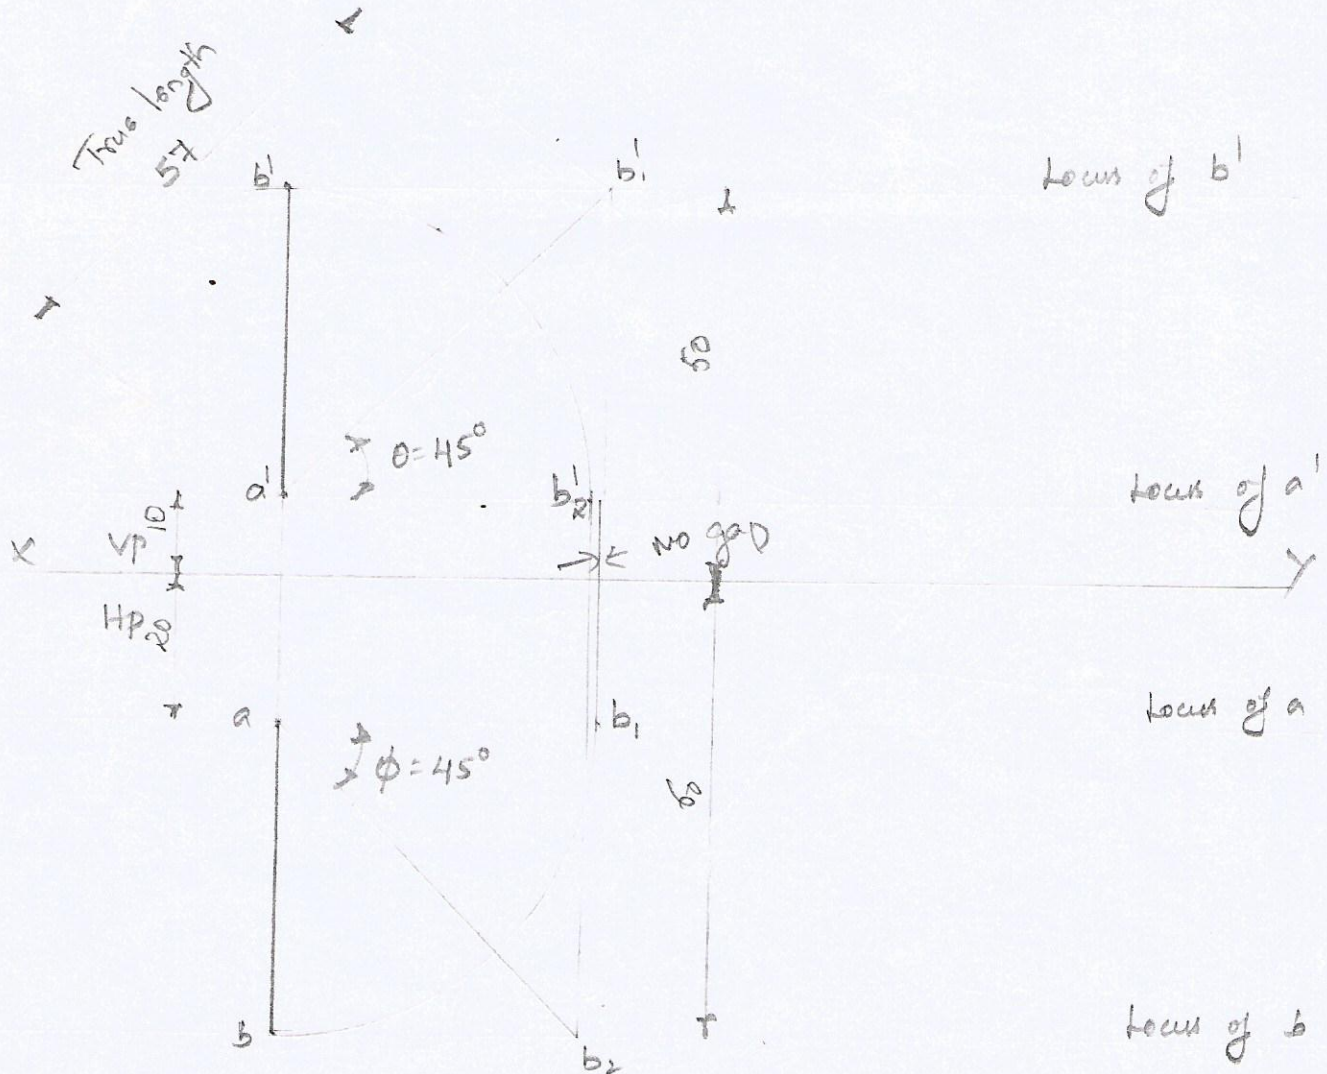 True length
57
b'
b'₁
Locus of b'
50
θ=45°
a'
b'₂
Locus of a'
10
VP
No gap
X
Y
HP
20
a
b₁
Locus of a
φ=45°
60
b
b₂
Locus of b